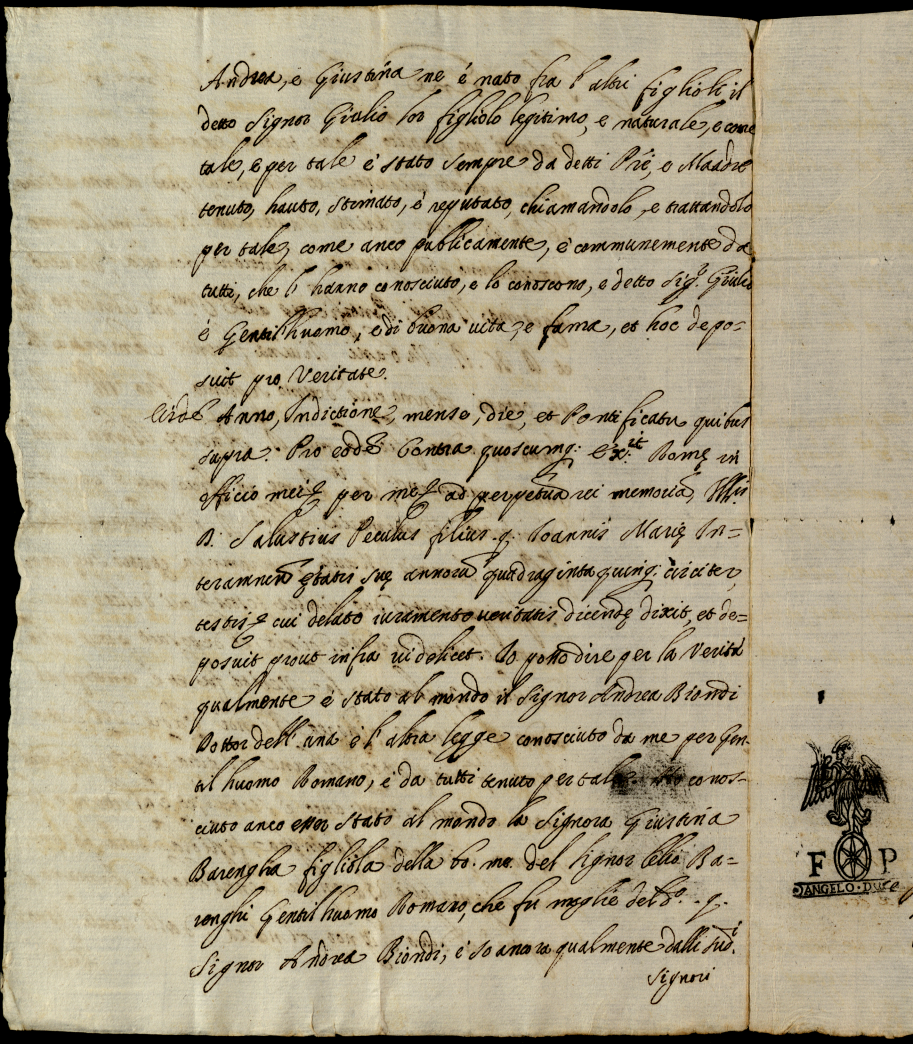 Andrea, e Giustina ne é nato fra l' altri figlioli il
detto Signor Giulio lor figliolo legitimo, e naturale, e come
tale, e per tale é stato sempre da detti Pre, e Maadre
tenuto, hauto, stimato, é reputato, chiamandolo, e trattandolo
per tale, come anco publicamente, é communemente da
tutti, che l' hanno conosciuto, e lo conoscono, e detto Sig.r Giulio
é Gentilhuomo, e di buona vita, e fama, et hoc depo=
suit pro Veritate.
Anno, Indictione, mense, die, et Pontificatu quibus
supra. Pro eod. Contra quoscumq: Ex.it Romę in
officio mei per me ad perpetuã rei memoriã, Illris
D. Salustius Peculus filius q. Ioannis Marię In=
teramnen ętatis suę annorũ quadraginta quinq: circiter,
testis cui delato iuramento veritatis dicendę dixit, et de=
posuit prout infra videlicet. Io posso dire per la Verità
qualmente é stato al mondo il Signor Andrea Biondi
Dottor dell' una é l' altra legge conosciuto da me per Gen-
til huomo Romano, é da tutti tenuto per tale conos=
ciuto anco esser stato al mondo la Signora Giustina
Barengha figliola della bo. me. del Signor Lelio Ba=
renghi Gentilhuomo Romano, che fu moglie del d.o q.
Signor Andrea Biondi, é so ancora qualmente dalli sud.i
Signori
F P
SANGELO · DUCE